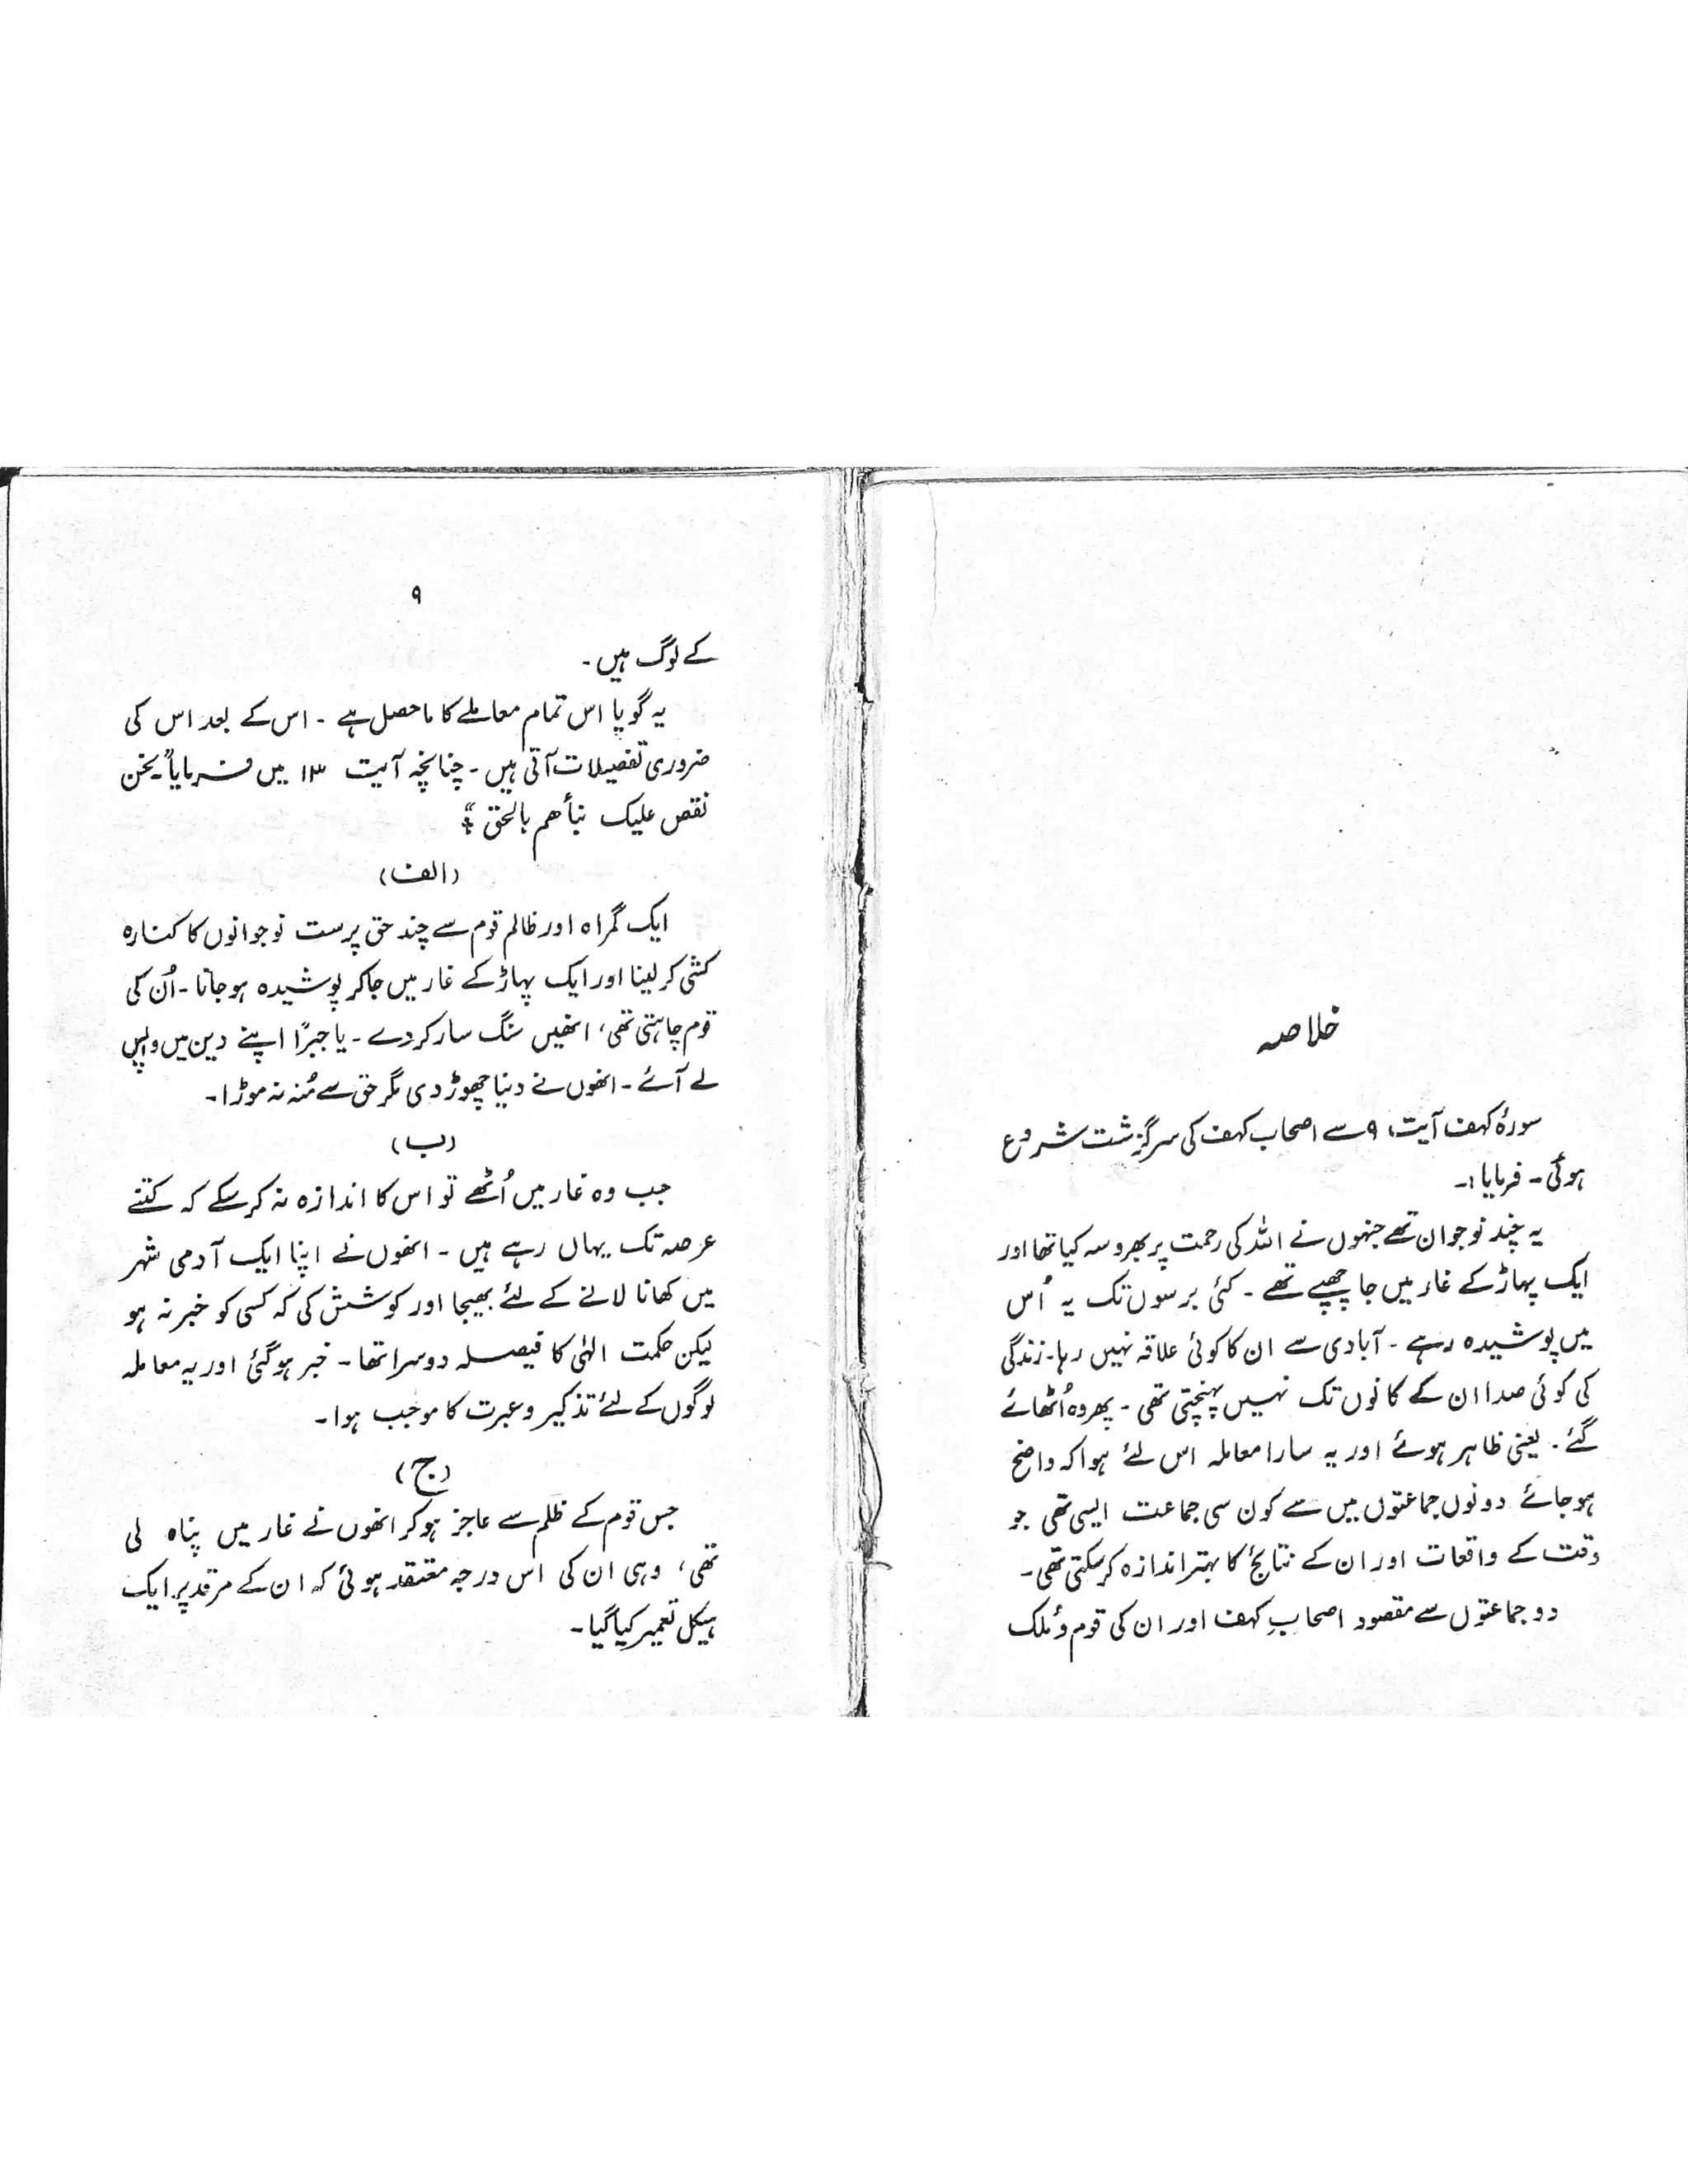 خلاصہ
سورۂ کہف آیت ۹ سے اصحاب کہف کی سرگزشت شروع
ہوئی - فرمایا :-
یہ چند نوجوان تھے جنہوں نے اللہ کی رحمت پر بھروسہ کیا تھا اور
ایک پہاڑ کے غار میں جا چھپے تھے - کئی برسوں تک یہ اُس
میں پوشیدہ رہے - آبادی سے ان کا کوئی علاقہ نہیں رہا - زندگی
کی کوئی صدا ان کے کانوں تک نہیں پہنچتی تھی - پھر وہ اُٹھائے
گئے - یعنی ظاہر ہوئے اور یہ سارا معاملہ اس لئے ہوا کہ واضح
ہو جائے دونوں جماعتوں میں سے کون سی جماعت ایسی تھی جو
وقت کے واقعات اور ان کے نتائج کا بہتر اندازہ کر سکتی تھی -
دو جماعتوں سے مقصود اصحابِ کہف اور ان کی قوم و مُلک
۹
کے لوگ ہیں -
یہ گویا اس تمام معاملے کا ماحصل ہے - اس کے بعد اس کی
ضروری تفصیلات آتی ہیں - چنانچہ آیت ۱۳ میں فرمایا "نحن
نقص علیک نبأھم بالحق"
(الف)
ایک گمراہ اور ظالم قوم سے چند حق پرست نوجوانوں کا کنارہ
کشی کر لینا اور ایک پہاڑ کے غار میں جا کر پوشیدہ ہو جانا - اُن کی
قوم چاہتی تھی، انھیں سنگ سار کر دے - یا جبراً اپنے دین میں واپس
لے آئے - انھوں نے دنیا چھوڑ دی مگر حق سے مُنہ نہ موڑا -
(ب)
جب وہ غار میں اُٹھے تو اس کا اندازہ نہ کر سکے کہ کتنے
عرصہ تک یہاں رہے ہیں - انھوں نے اپنا ایک آدمی شہر
میں کھانا لانے کے لئے بھیجا اور کوشش کی کہ کسی کو خبر نہ ہو
لیکن حکمت الٰہی کا فیصلہ دوسرا تھا - خبر ہو گئی اور یہ معاملہ
لوگوں کے لئے تذکیر و عبرت کا موجب ہوا -
(ج)
جس قوم کے ظلم سے عاجز ہو کر انھوں نے غار میں پناہ لی
تھی، وہی ان کی اس درجہ معتقد ہوئی کہ ان کے مرقد پر ایک
ہیکل تعمیر کیا گیا -